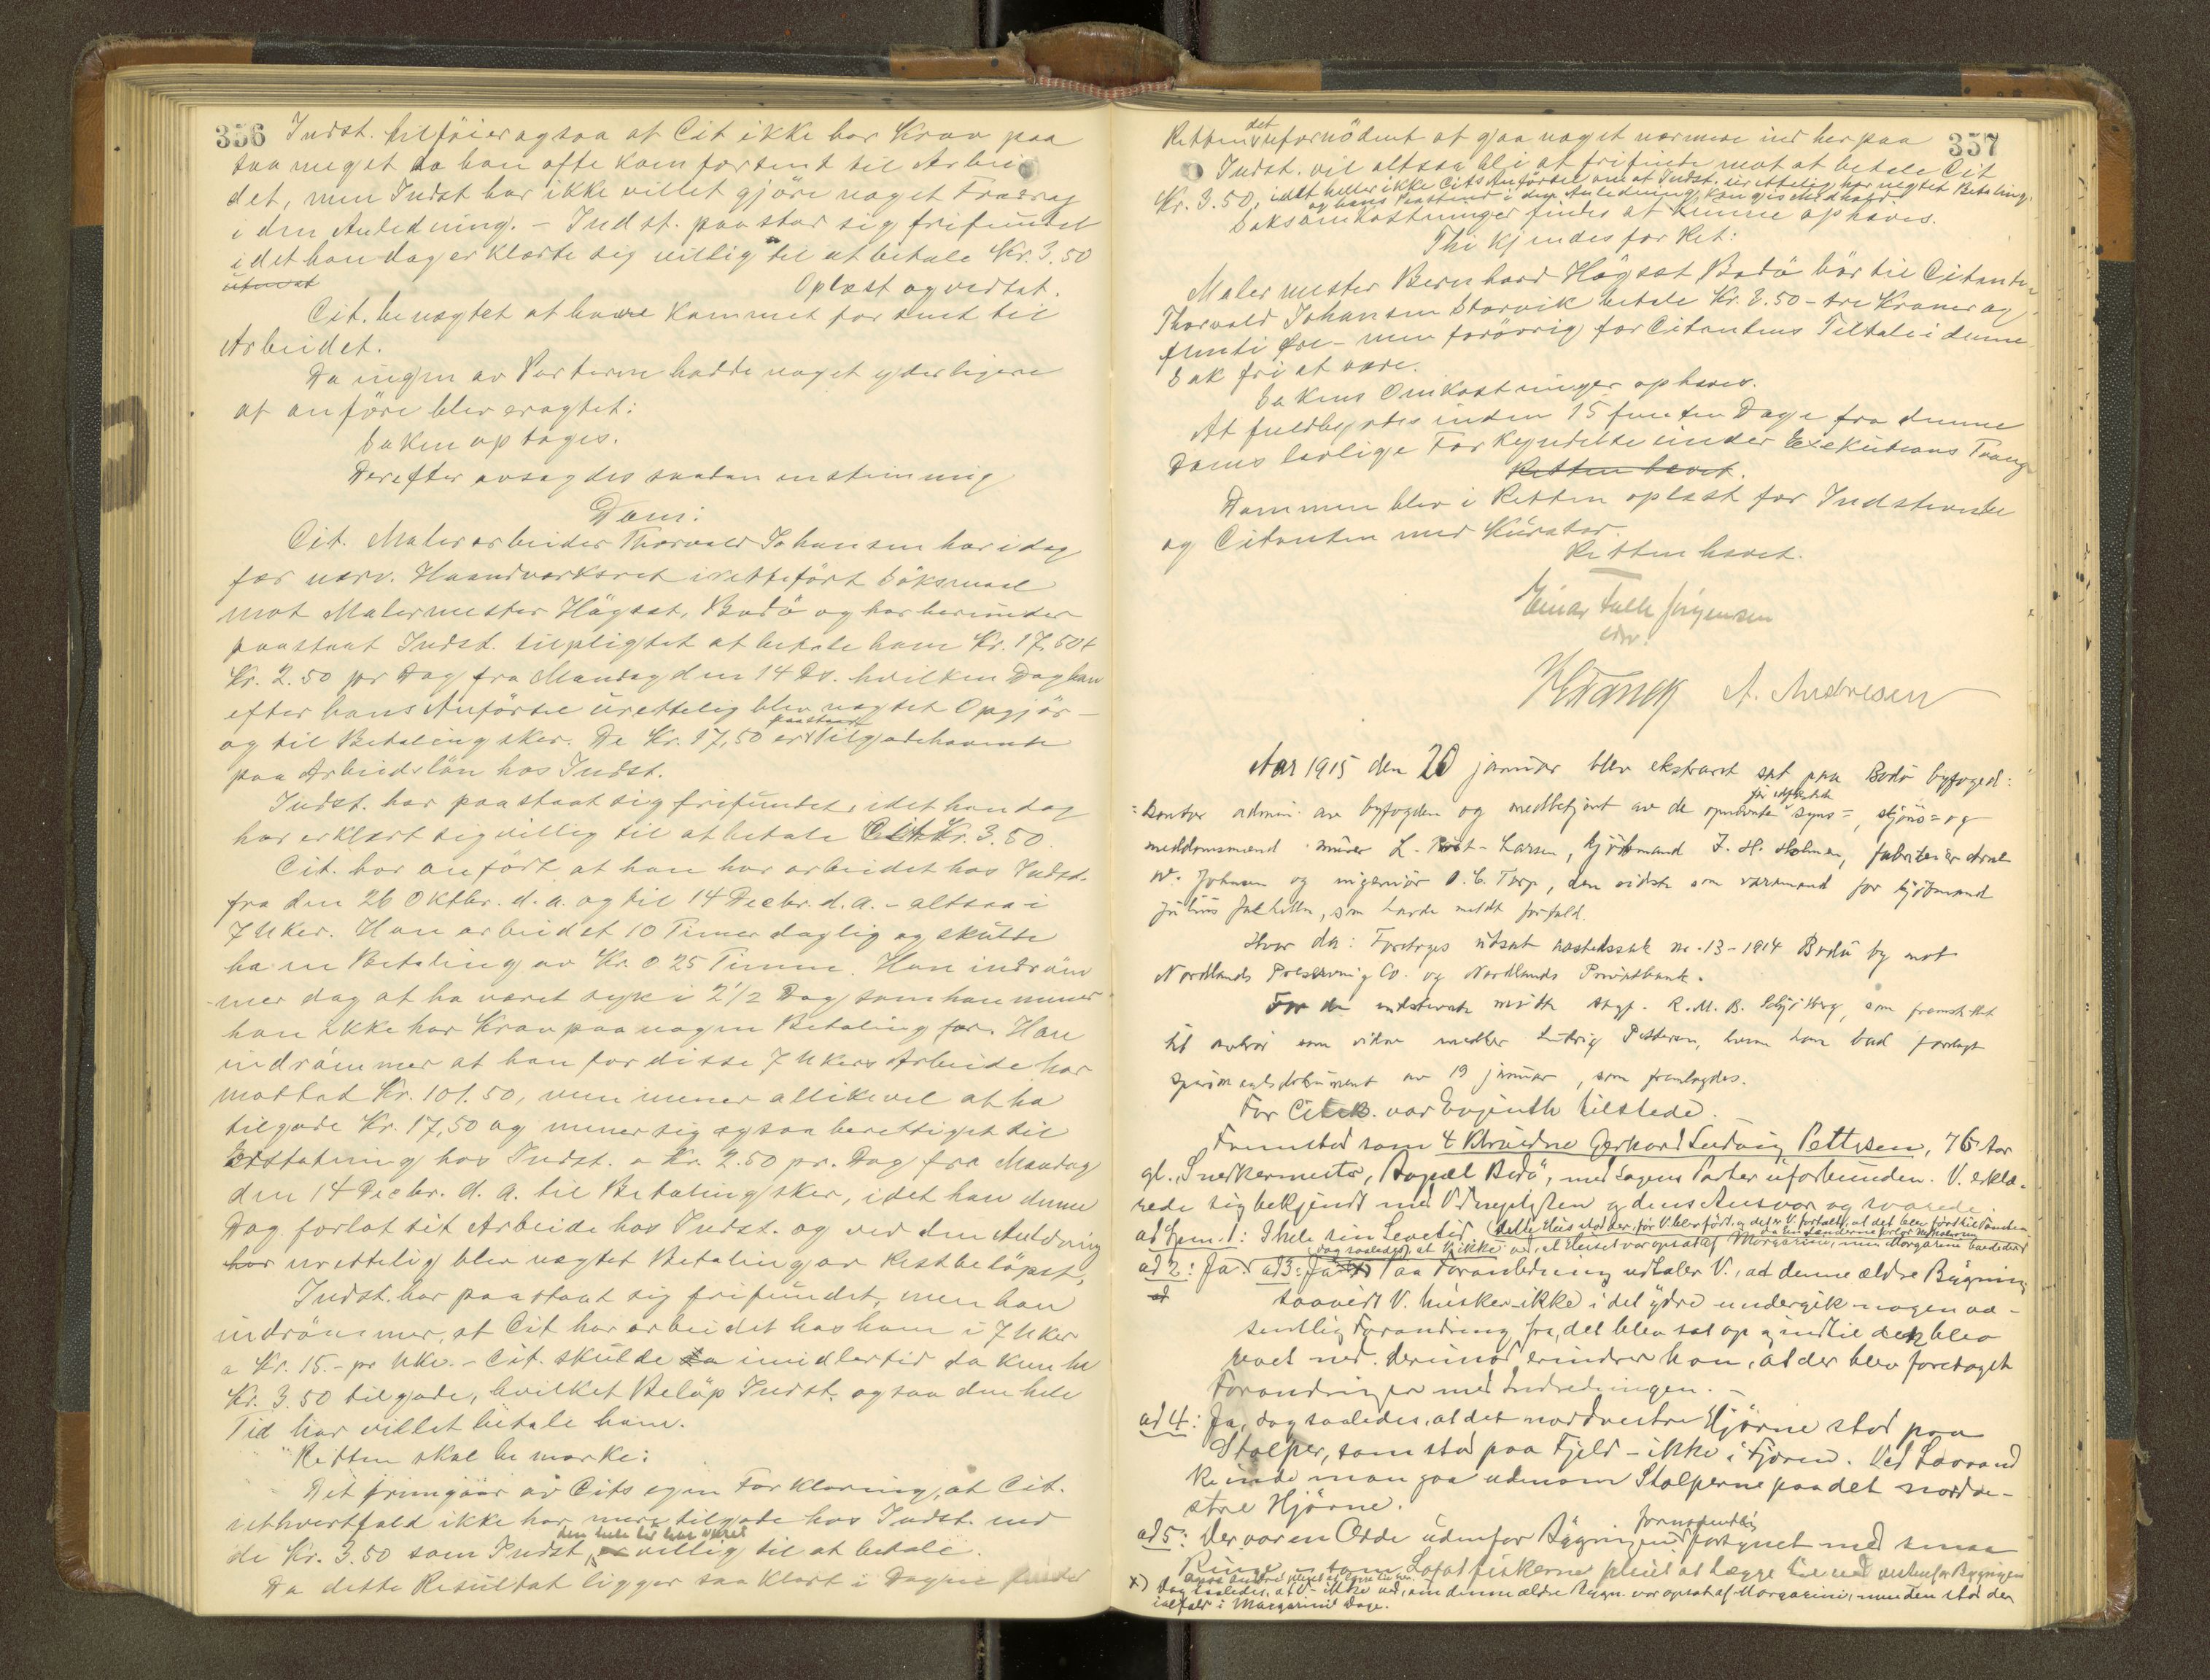 356
Indst. tilføier ogsaa at Cit ikke har Krav paa
saa meget da han ofte kom forsent til Arbei
det, men Indst har ikke villet gjøre noget Fradrag
i den Anledning. - Indst. paastod sig frifundet
idet han dog erklærte sig villig til at betale Kr. 3.50
Oplæst og vedtat.
Cit. benegtet at have kommet for sent til
Arbeidet.
Da ingen av Parterne hadde noget yderligere
at anføre blev eragtet:
Saken optages.
Derefter avsagdes saadan enstemmig
Dom:
Cit. Malerarbeider Thorvald Johansen har idag
for nærv. Haandverksret iretteført Søksmaal
mot Malermester Høgset, Bodø og har herunder
paastaat Indst. tilpligtet at betale ham Kr. 17,50 +
Kr. 2.50 pr Dag fra Mandag den 14 Ds. hvilken Dag han
efter hans Anførsel urettelig blev nægtet Opgjør -
og til Betaling sker. De Kr. 17,50 er paastaat Tilgodehavende
paa Arbeidsløn hos Indst.
Indst. har paastaat sig frifundet, idet han dog
har erklært sig villig til at betale Cit Kr. 3.50.
Cit. har anført at han har arbeidet hos Indst.
fra den 26 Oktbr. d. a. og til 14 Decbr. d. a. - altsaa i
7 Uker. Han arbeidet 10 Timer daglig og skulde
ha en Betaling av Kr 0.25 Timen. Han indrøm
mer dog at ha været syk i 2 1/2 Dag som han mener
han ikke har Krav paa nogen Betaling for. Han
indrømmer at han for disse 7 Ukers Arbeide har
mottat Kr. 101.50, men mener allikevel at ha
tilgode Kr. 17,50 og mener sig ogsaa berettiget til
Erstatning hos Indst. a Kr. 2.50 pr. Dag fra Mandag
den 14 Decbr. d. a. til Betaling sker, idet han denne
Dag forlot sit Arbeide hos Indst. og ved den Anledning
har urettelig blev nægtet Betaling av Restbeløpet.
Indst. har paastaat sig frifundet, men han
indrømmer, at Cit har arbeidet hos ham i 7 Uker
a Kr. 15.- pr Uke. - Cit. skulde imidlertid da kun ha
Kr. 3.50 tilgode, hvilket Beløp Indst. ogsaa den hele
Tid har villet betale ham.
Retten skal bemærke:
Det fremgaar av Cits egen Forklaring, at Cit.
iethvertfald ikke har mere tilgode hos Indst. end
de Kr. 3.50 som Indst, den hele tid har været villig til at betale.
Da dette Resultat ligger saa klart i Dagen finder
357
Retten det ufornødent at gaa noget nærmere ind herpaa
Indst. vil altsaa bli at frifinde mot at betale Cit
Kr. 3.50, idet heller ikke Cits Anførsel om at Indst. urettelig har negtet Betaling,
og hans Paastand i den Anledning kan gis Medhold.
Saksomkostninger findes at kunne ophæves.
Thi kjendes for Ret:
Malermester Bernhard Høgset Bodø bør til Citanten
Thorvald Johansen Storvik betale Kr. 3.50 - tre Kroner og
femti Øre - men forøvrig for Citantens Tiltale i denne
Sak fri at være.
Sakens Omkostninger ophæves.
At fuldbyrdes inden 15 femten Dage fra denne
Doms lovlige Forkyndelse under Exekutions Tvang
Retten hævet.
Dommen blev i Retten oplæst for Indstevnte
og Citanten med Kurator.
Retten hævet.
Einar Falk Jørgensen
A. Andresen
Aar 1915 den 20 januar blev ekstraret sat paa Bodø byfoged:
=kontor admin. av byfogden og medbetjent av de opnævnte for utflyttede syns=, skjøns= og
meddomsmænd murer L. Rist-Larsen, kjøbmand J. H. Holmen, fabrikeier Arnt
W. Johnsen og ingeniør O. C. Torp, den sidste som varamand for kjøbmand
Julius Jakhelln, som havde meldt forfald.
Hvor da: Foretoges utsat gjesteretssak nr. 13-1914 Bodø by mot
Nordlands Preserving Co. og Nordlands Privatbank.
For de indstevnte møtte sagf. R. M. B. Schjølberg, som fremstillet
til avhør som vidne snedker Ludvig Pettersen, hvem han bad forelagt
spørsmaalsdokument av 19 januar, som fremlagdes.
For Cit. var Evjenth tilstede.
Fremstod som 4 Vidne Gerhard Ludvig Pettersen, 76 Aar
gl., Snedkermester, Bopæl Bodø, med Sagens Parter uforbunden. V. erklæ-
rede sig bekjendt med Vidnepligten og dens Ansvar og svarede
ad Spm. 1: I hele sin Levetid.
ad 2: Ja. ad 3: Ja Paa Foranledning udtaler V., at denne ældre Bygning
saavidt V. husker ikke i det ydre undergik nogen væ-
sentlig Forandring fra det blev sat op og indtil den blev
revet ned. derimod erindrer han, at der blev foretaget
Forandringer med Indredningen. -
ad 4: Ja, dog saaledes, at det nordvestre Hjørne stod paa
Stolper, som stod paa Fjeld - ikke i Fjæren. Ved Lavvand
kunde man gaa udenom Stolperne paa det nordve-
stre Hjørne.
ad 5: Der var en Odde udenfor Bygningen fornemmelig forsynet med smaa
Ringe som Lofotfiskerne pleiet at lægge til ved vestenfor Bygningen
x) Dog saaledes, at V. ikke ved, om denne ældre Bygn. var opsat af Morgarini, men den stod der
ialfald i Morgarinis Dage.